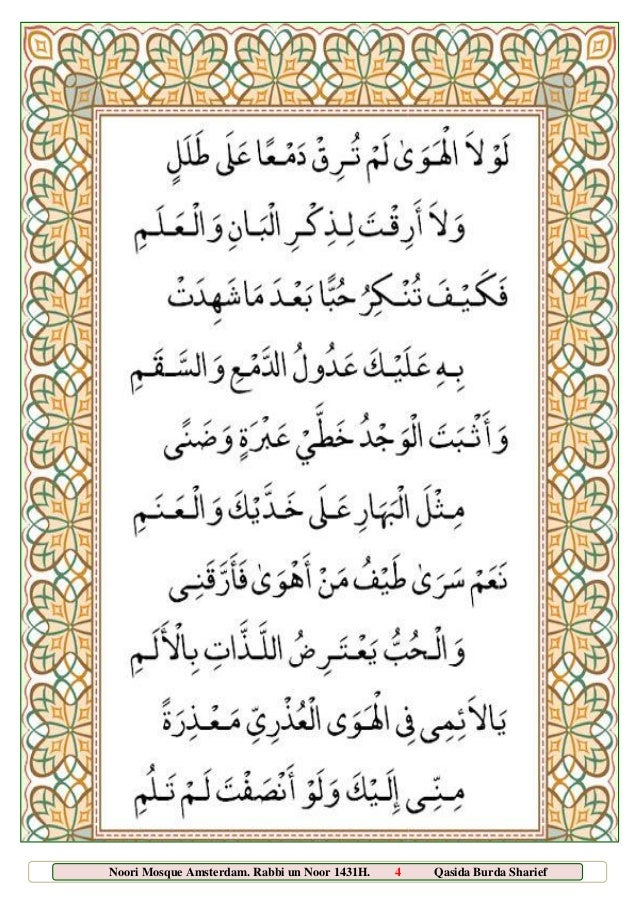 لَوْلاَ الْهَوٰى لَمْ تُرِقْ دَمْعًا عَلَى طَلَلٍ
وَلاَ أَرِقْتَ لِذِكْرِ الْبَانِ وَالْعَلَمِ
فَكَيْفَ تُنْكِرُ حُبًّا بَعْدَ مَا شَهِدَتْ
بِهِ عَلَيْكَ عَدُولُ الدَّمْعِ وَالسَّقَمِ
وَأَثْبَتَ الْوَجْدُ خَطَّيْ عَبْرَةٍ وَضَنًى
مِثْلَ الْبَهَارِ عَلَى خَدَّيْكَ وَالْعَنَمِ
نَعَمْ سَرٰى طَيْفُ مَنْ أَهْوٰى فَأَرَّقَنِى
وَالْحُبُّ يَعْتَرِضُ اللَّذَّاتِ بِالْأَلَمِ
يَالاَئِمِى فِى الْهَوَى الْعُذْرِيِّ مَعْذِرَةً
مِنِّى إِلَيْكَ وَلَوْ أَنْصَفْتَ لَمْ تَلُمِ
Noori Mosque Amsterdam. Rabbi un Noor 1431H. 4 Qasida Burda Sharief